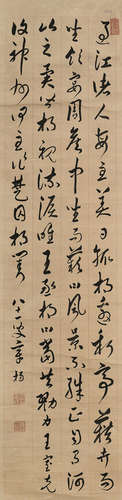 過江諸人每至美日輒相邀新亭藉卉
坐飲宴周侯中坐而嘆曰風景不殊正自有河
山之異皆相視流淚唯王丞相曰當共勠力王室克
復神州何主作楚囚相對
八十一叟章